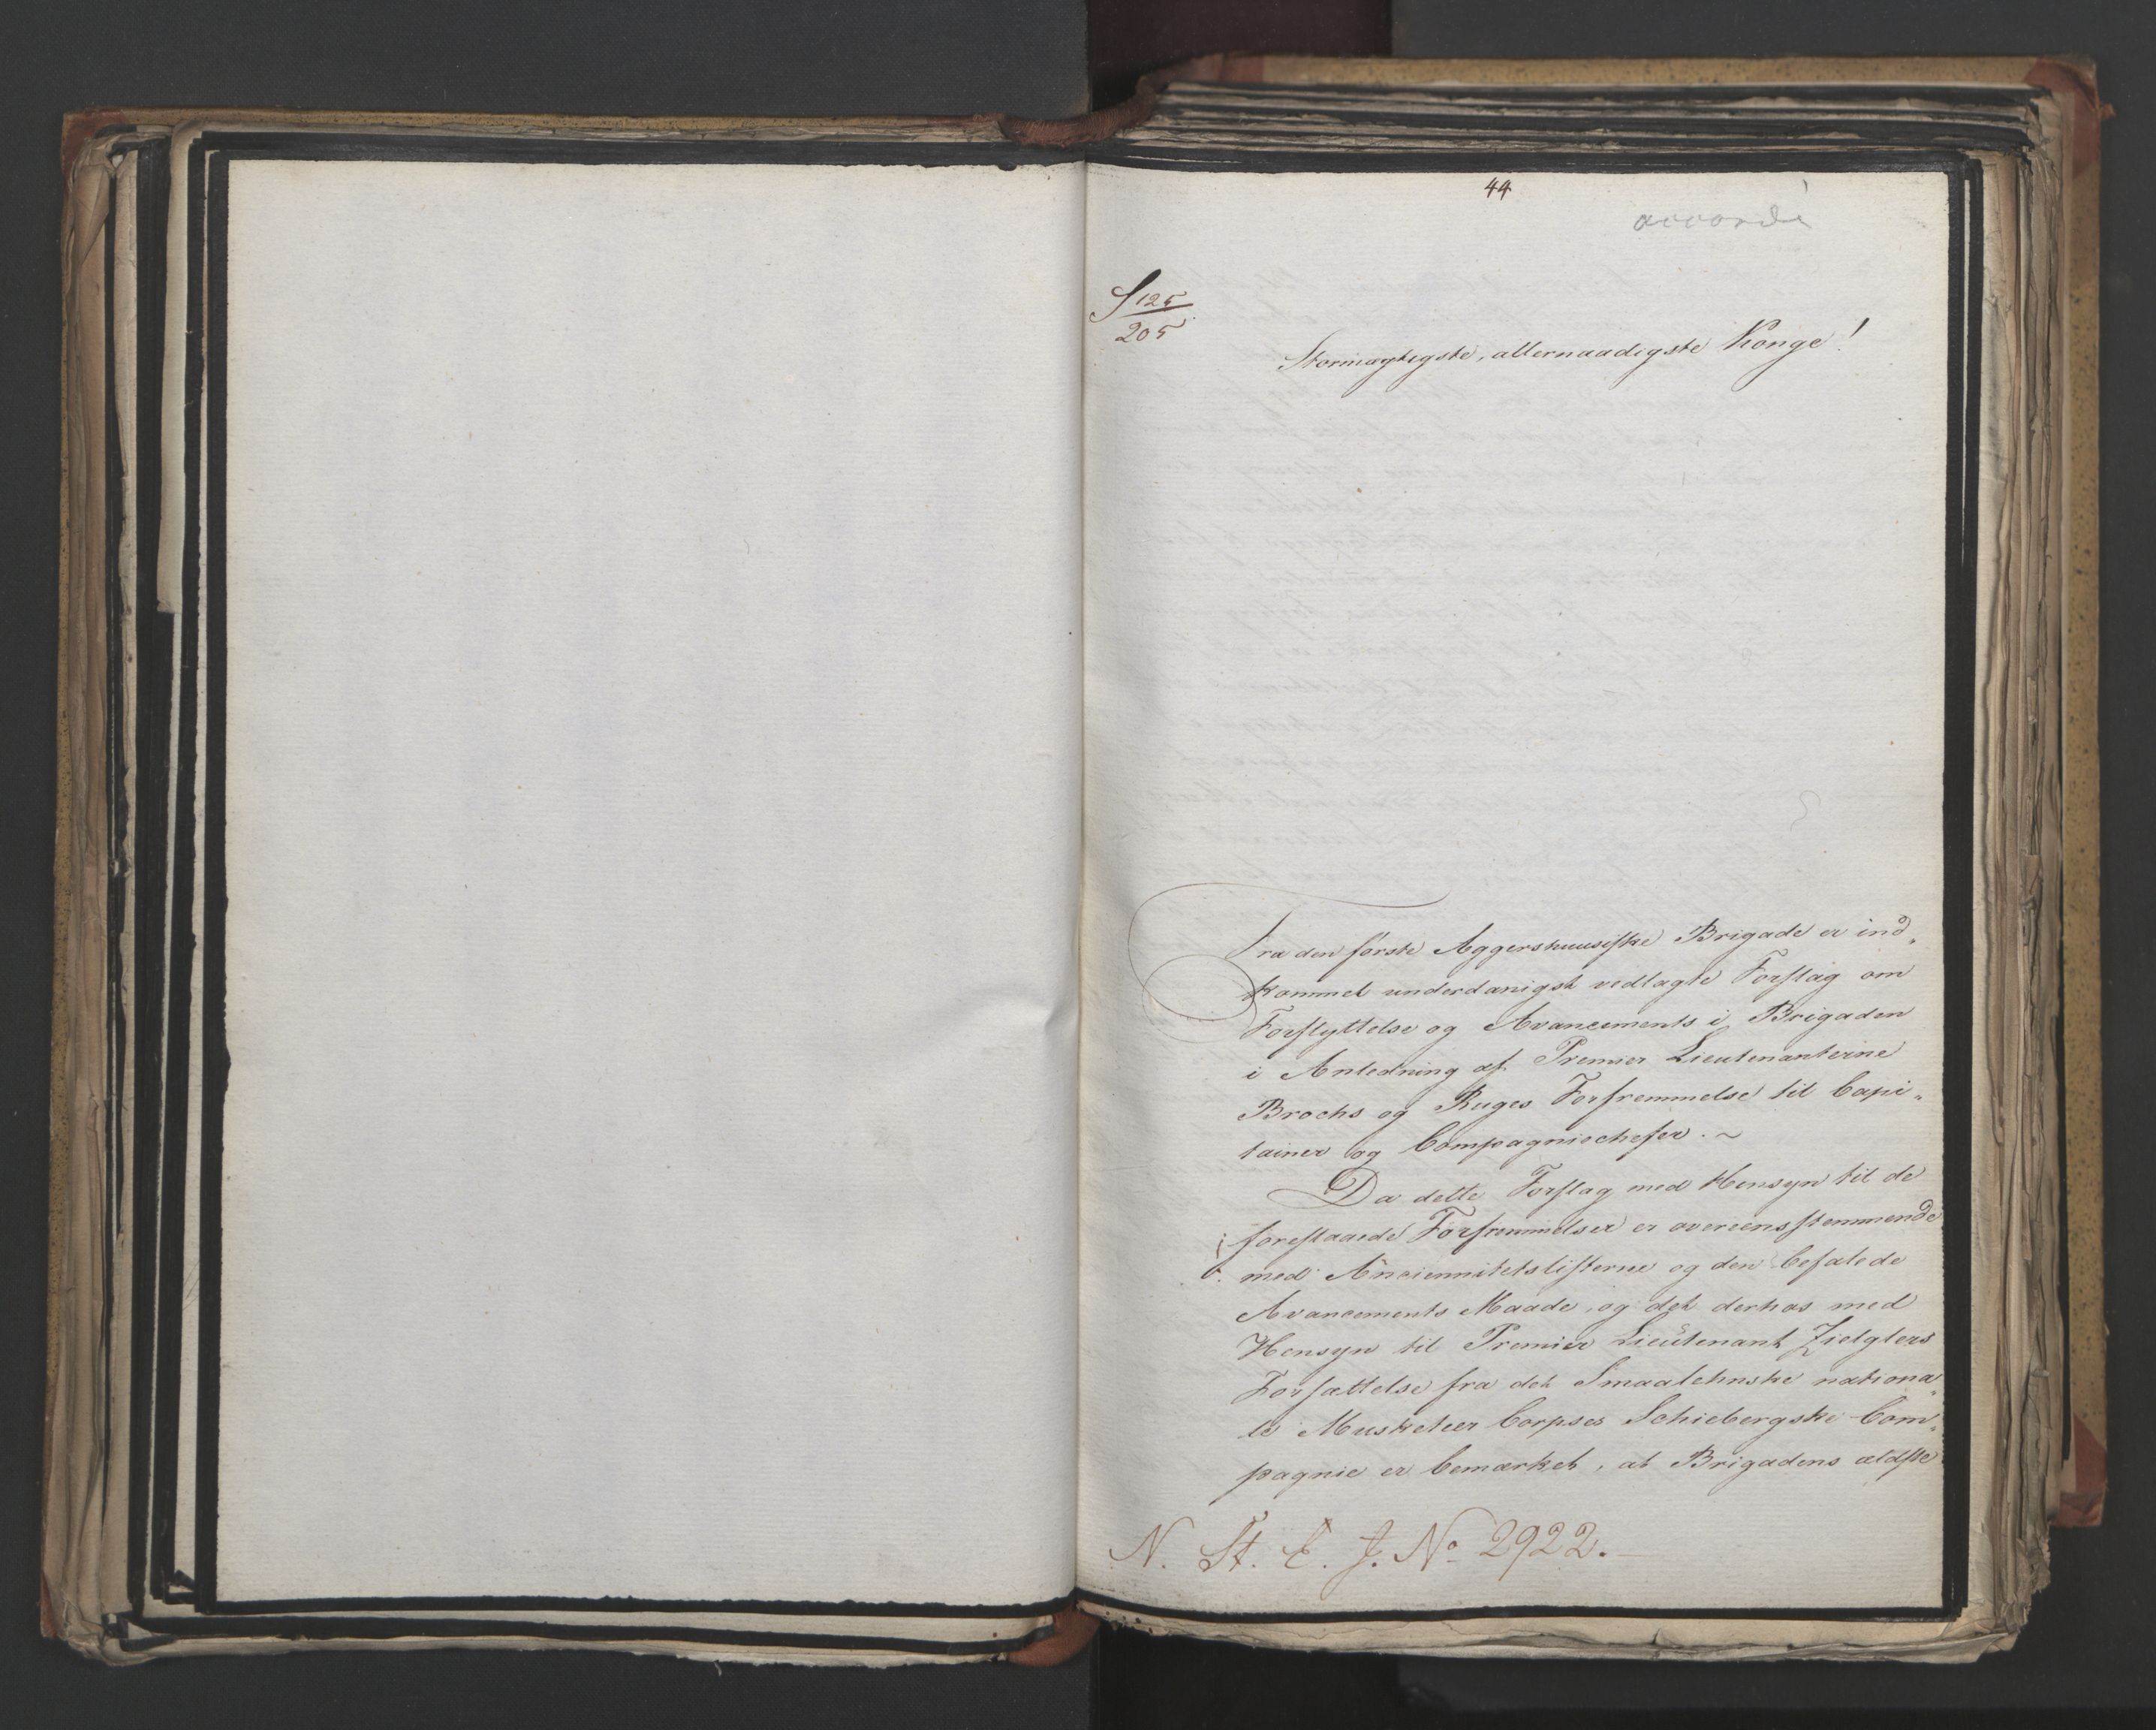 44
accordé
S 125
205
Stormægtigste, allernaadigste Konge!
Fra den første Aggershuusiske Brigade er ind„
kommet underdanigst vedlagte Forslag om
Forflyttelse og Avancements i Brigaden
i Anledning af Premier Lieutenanterne
Brochs og Ruges Forfremmelse til Capi„
tainer og Compagniechefer. ~
Da dette Forslag med Hensyn til de
foreslaaede Forfremmelser er overeensstemmende
med Anciennitetslisterne og den befalede
Avancements Maade, og det derhos med
Hensyn til Premier Lieutenant Zielglers
Forsættelse fra det Smaalehnske nationa„
le Musketeer Corpses Schiebergske Com„
pagnie er bemærket, at Brigadens ældste
N. St. E. J. No 2922.